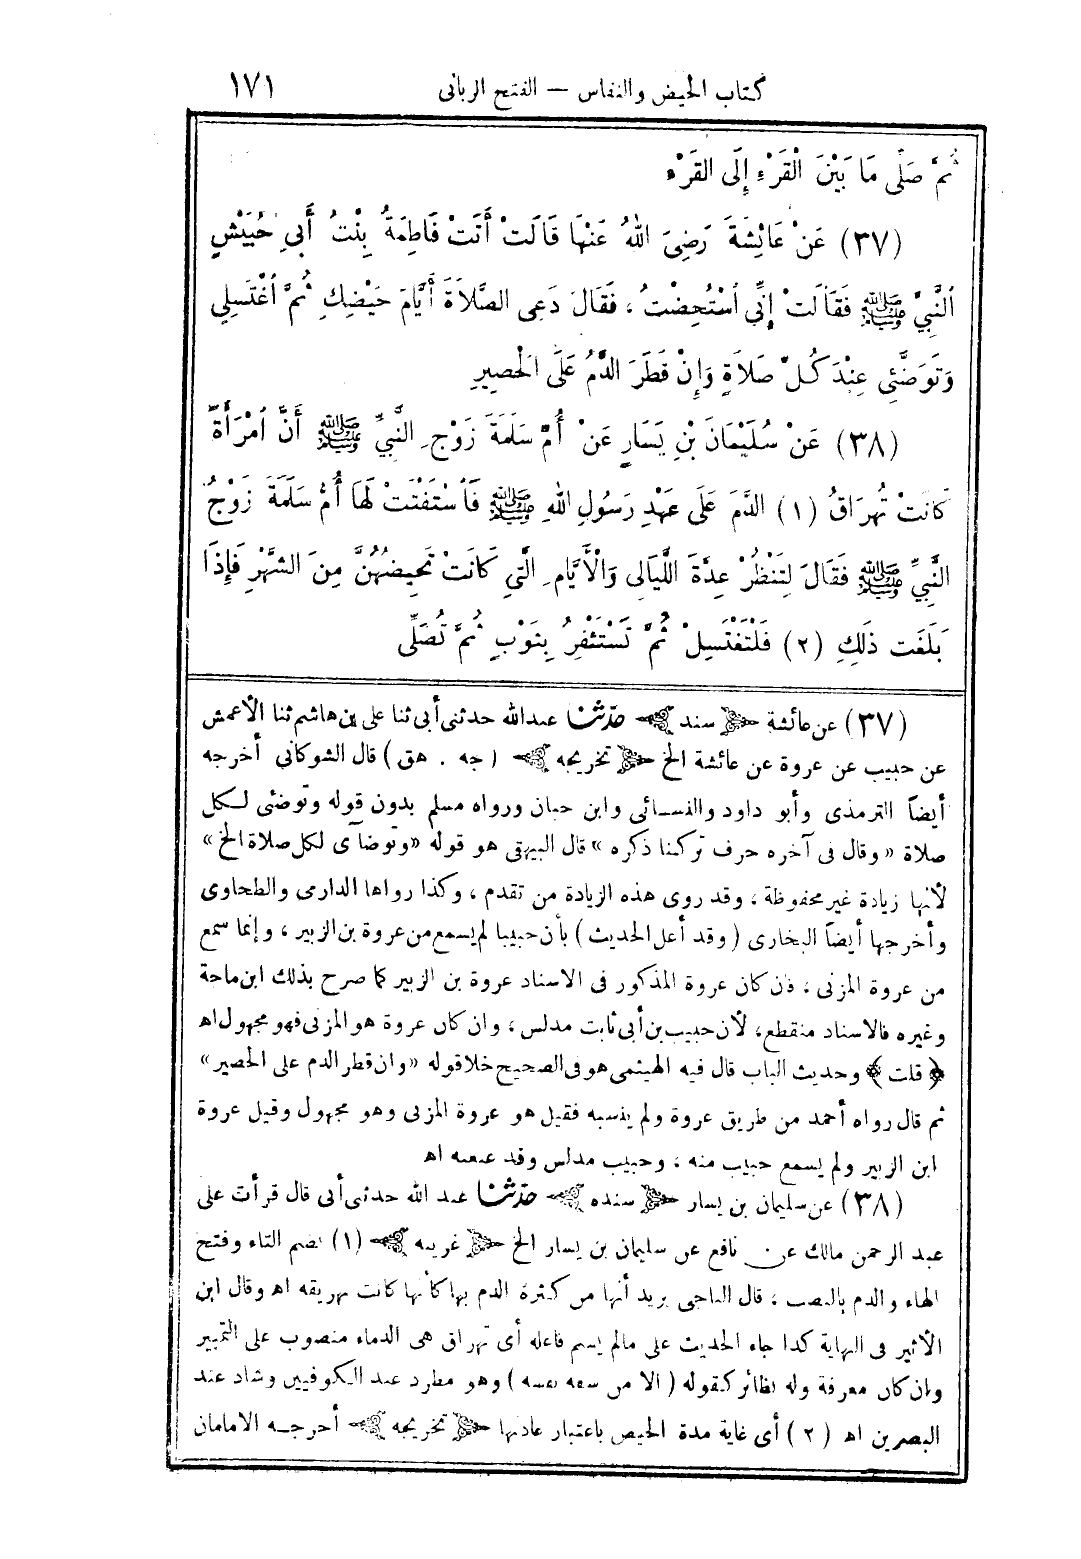 كتاب الحيض والنفاس — الفتح الربانى ١٧١
ثُمَّ صَلِّى مَا بَيْنَ الْقَرْءِ إِلَى الْقَرْءِ
(٣٧) عَنْ عَائِشَةَ رَضِىَ اللهُ عَنْهَا قَالَتْ أَتَتْ فَاطِمَةُ بِنْتُ أَبِى حُبَيْشٍ
اَلنَّبِيَّ ﷺ فَقَالَتْ إِنِّى اسْتُحِضْتُ ، فَقَالَ دَعِى الصَّلاَةَ أَيَّامَ حَيْضِكِ ثُمَّ اغْتَسِلِى
وَتَوَضَّئِى عِنْدَ كُلِّ صَلاَةٍ وَإِنْ قَطَرَ الدَّمُ عَلَى الْحَصِيرِ
(٣٨) عَنْ سُلَيْمَانَ بْنِ يَسَارٍ عَنْ أُمِّ سَلَمَةَ زَوْجِ النَّبِيِّ ﷺ أَنَّ امْرَأَةً
كَانَتْ تُهْرَاقُ (١) الدَّمَ عَلَى عَهْدِ رَسُولِ اللهِ ﷺ فَاسْتَفْتَتْ لَهَا أُمُّ سَلَمَةَ زَوْجُ
النَّبِيِّ ﷺ فَقَالَ لِتَنْظُرْ عِدَّةَ اللَّيَالِى وَالْأَيَّامِ الَّتِى كَانَتْ تَحِيضُهُنَّ مِنَ الشَّهْرِ فَإِذَا
بَلَغَت ذَلِكِ (٢) فَلْتَغْتَسِلْ ثُمَّ تَسْتَثْفِرُ بِثَوْبٍ ثُمَّ تُصَلِّى
(٣٧) عن عائشة ﴿ سند ﴾ حدّثنا عبدالله حدثنى أبى ثنا على بن هاشم ثنا الأعمش
عن حبيب عن عروة عن عائشة الخ ﴿ تخريجه ﴾ ( جه . هق ) قال الشوكانى أخرجه
أيضاً الترمذى وأبو داود والنسائى وابن حبان ورواه مسلم بدون قوله وتوضئى لكل
صلاة « وقال فى آخره حرف تركنا ذكره » قال البيهقى هو قوله « وتوضآى لكل صلاة الخ »
لأنها زيادة غير محفوظة ، وقد روى هذه الزيادة من تقدم ، وكذا رواها الدارمى والطحاوى
وأخرجها أيضاً البخارى ( وقد أعل الحديث ) بأن حبيبا لم يسمع من عروة بن الزبير ، وإنما سمع
من عروة المزنى ، فان كان عروة المذكور فى الاسناد عروة بن الزبير كما صرح بذلك ابن ماجة
وغيره فالاسناد منقطع، لأن حبيب بن أبى ثابت مدلس ، وان كان عروة هو المزنى فهو مجهول اه
﴿ قلت ﴾ وحديث الباب قال فيه الهيثمى هو فى الصحيح خلا قوله « وان قطر الدم على الحصير »
ثم قال رواه أحمد من طريق عروة ولم ينسبه فقيل هو عروة المزنى وهو مجهول وقيل عروة
ابن الزبير ولم يسمع حبيب منه ، وحبيب مدلس وقد عنعنه اه
(٣٨) عن سليمان بن يسار ﴿ سنده ﴾ حدّثنا عبد الله حدثنى أبى قال قرأت على
عبد الرحمن مالك عن نافع عن سليمان بن يسار الخ ﴿ غريبه ﴾ (١) بضم التاء وفتح
الهاء والدم بالنصب ، قال الباجى يريد أنها من كثرة الدم بها كأنها كانت تهريقه اه وقال ابن
الأثير فى النهاية كذا جاء الحديث على مالم يسم فاعله أى تهراق هى الدماء منصوب على التمييز
وان كان معرفة وله نظائر كقوله ( الا من سفه نفسه ) وهو مطرد عند الكوفيين وشاذ عند
البصرين اه ( ٢ ) أى غاية مدة الحيض باعتبار عادتها ﴿ تخريجه ﴾ أخرجه الامامان